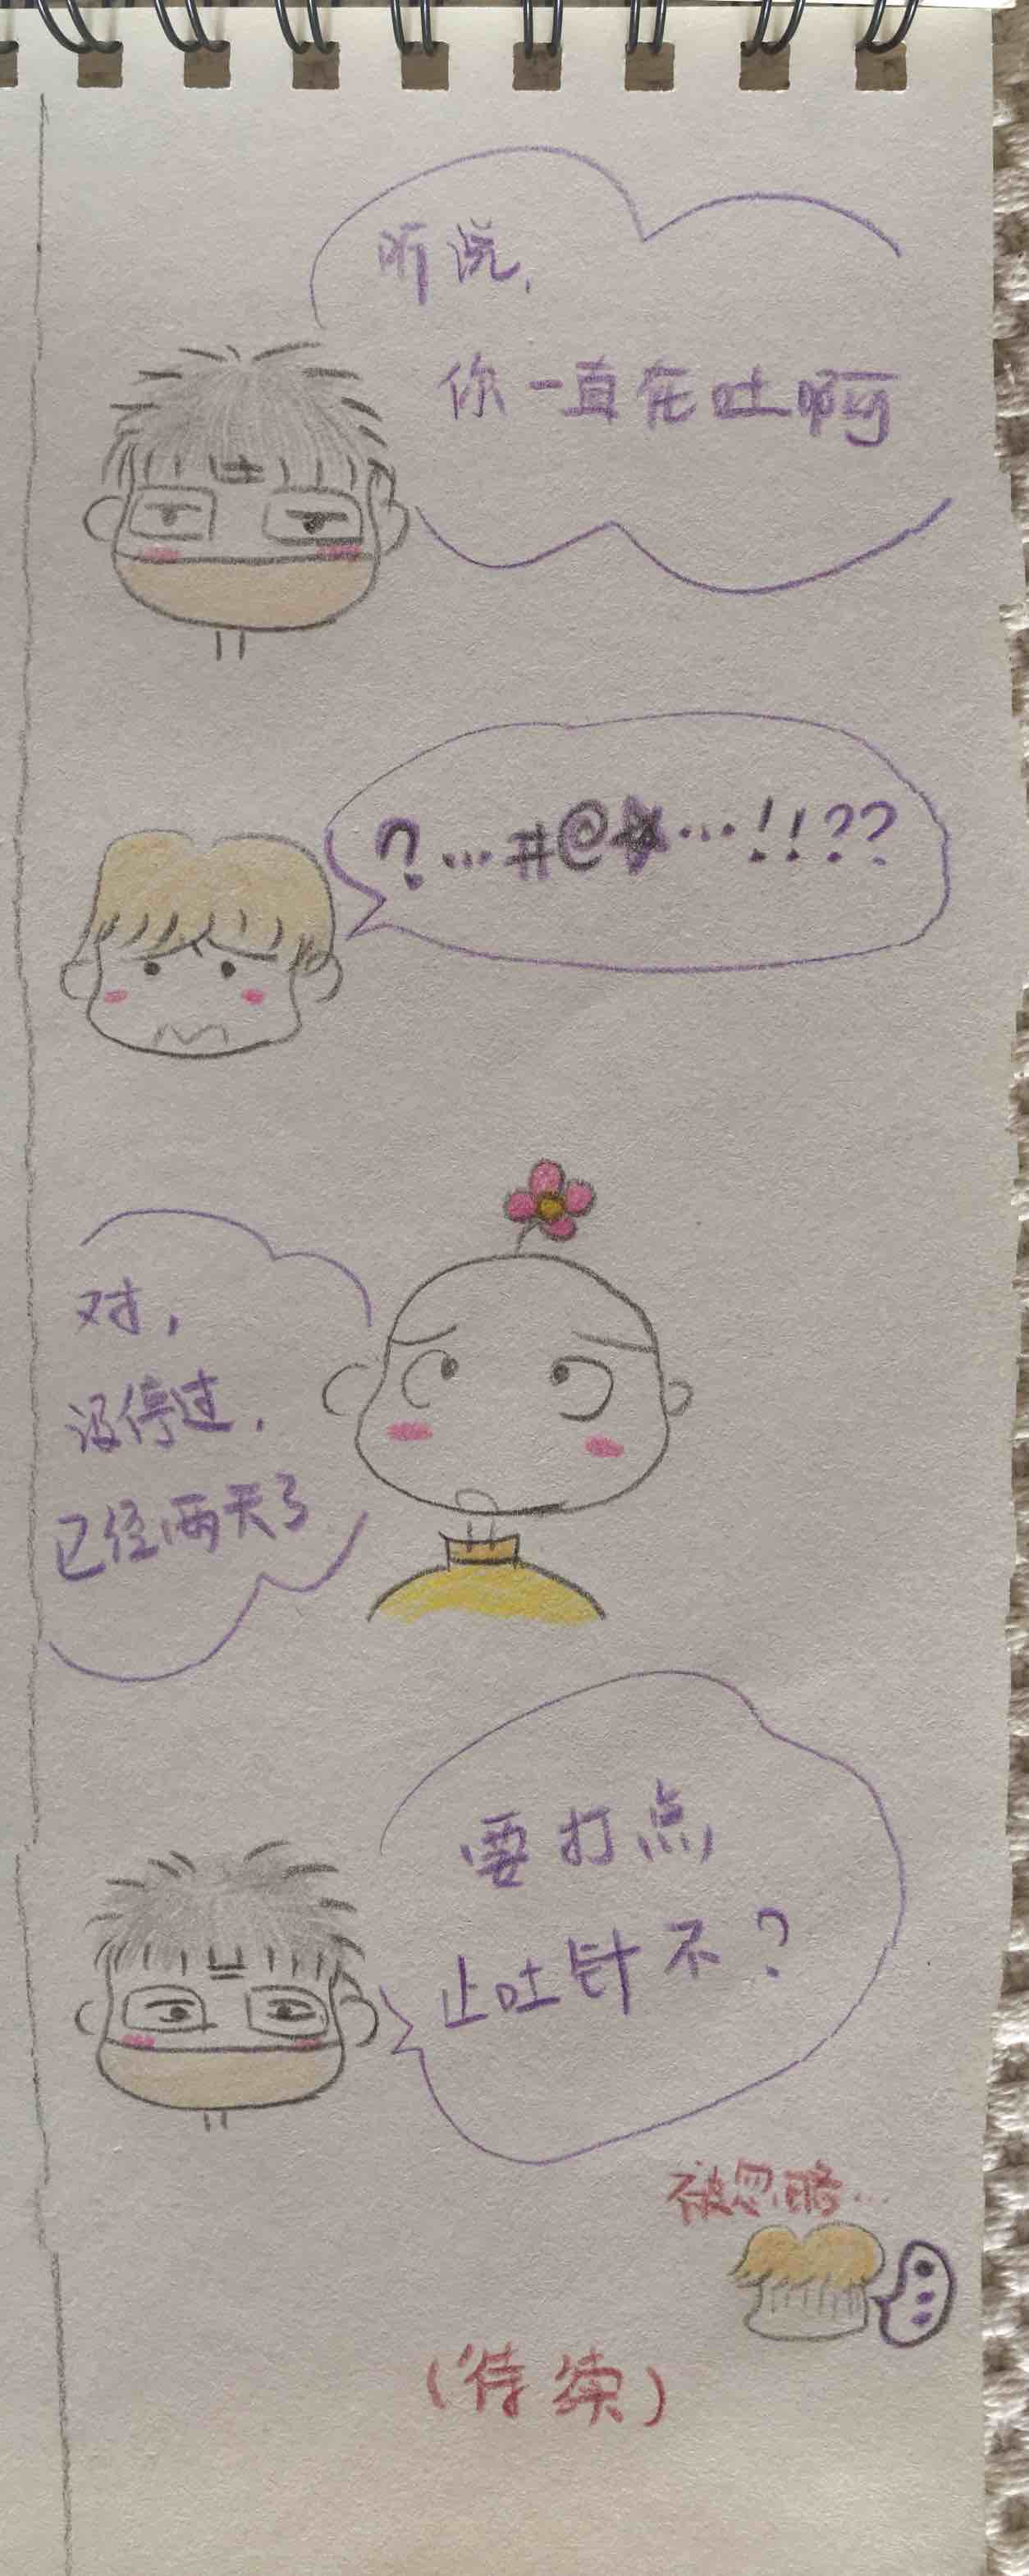 听说，
你一直在吐啊
?...#@*...!!??
对，
没停过，
已经两天了
要打点
止吐针不?
被忽略...
(待续)